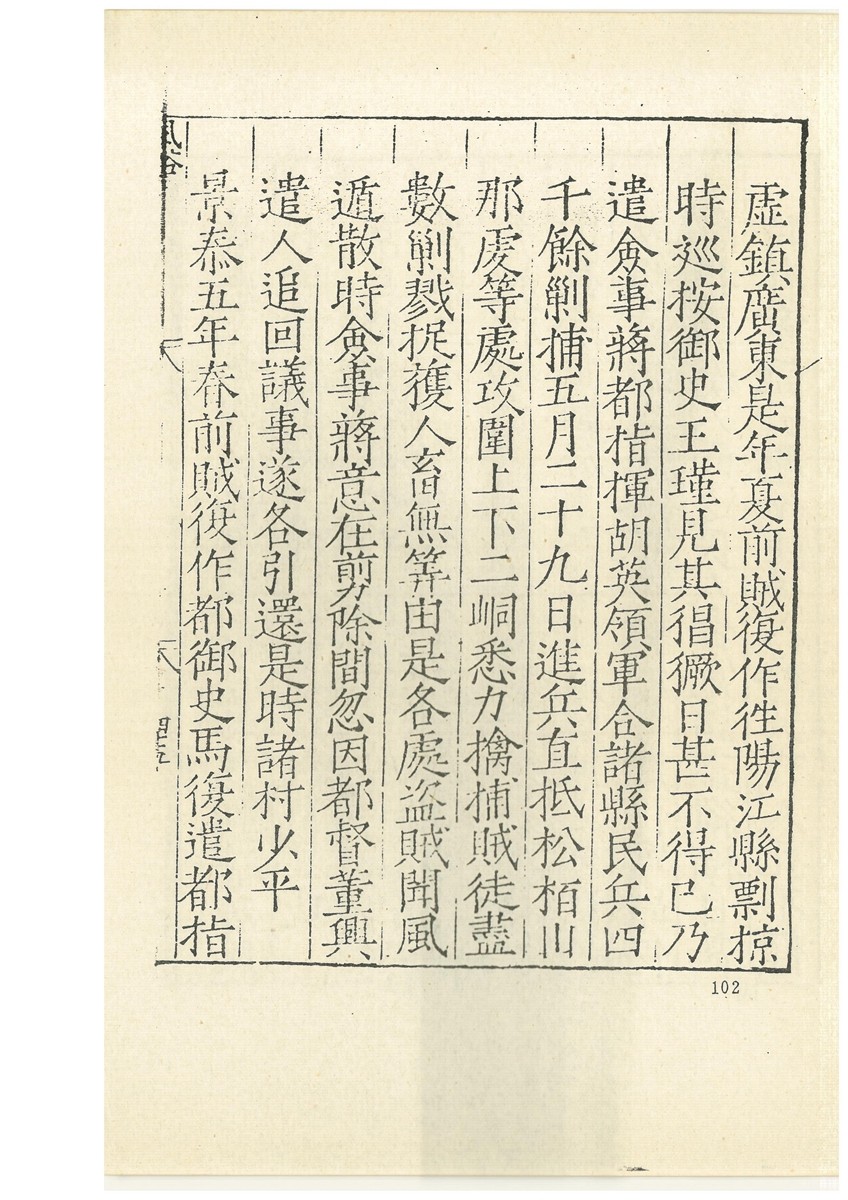 虛鎮廣東是年夏前賊復作徃陽江縣剽掠
時廵按御史王瑾見其猖獗日甚不得已乃
遣僉事蔣都指揮胡英領軍合諸縣民兵四
千餘剿捕五月二十九日進兵直抵松栢川
那䖏等處攻圍上下二峒悉力擒捕賊徒盡
數剿戮捉獲人畜無筭由是各處盗賊聞風
遁散時僉事蔣意在剪除間忽因都督董興
遣人追回議事遂各引還是時諸村少平
景泰五年春前賊復作都御史馬復遣都指
102